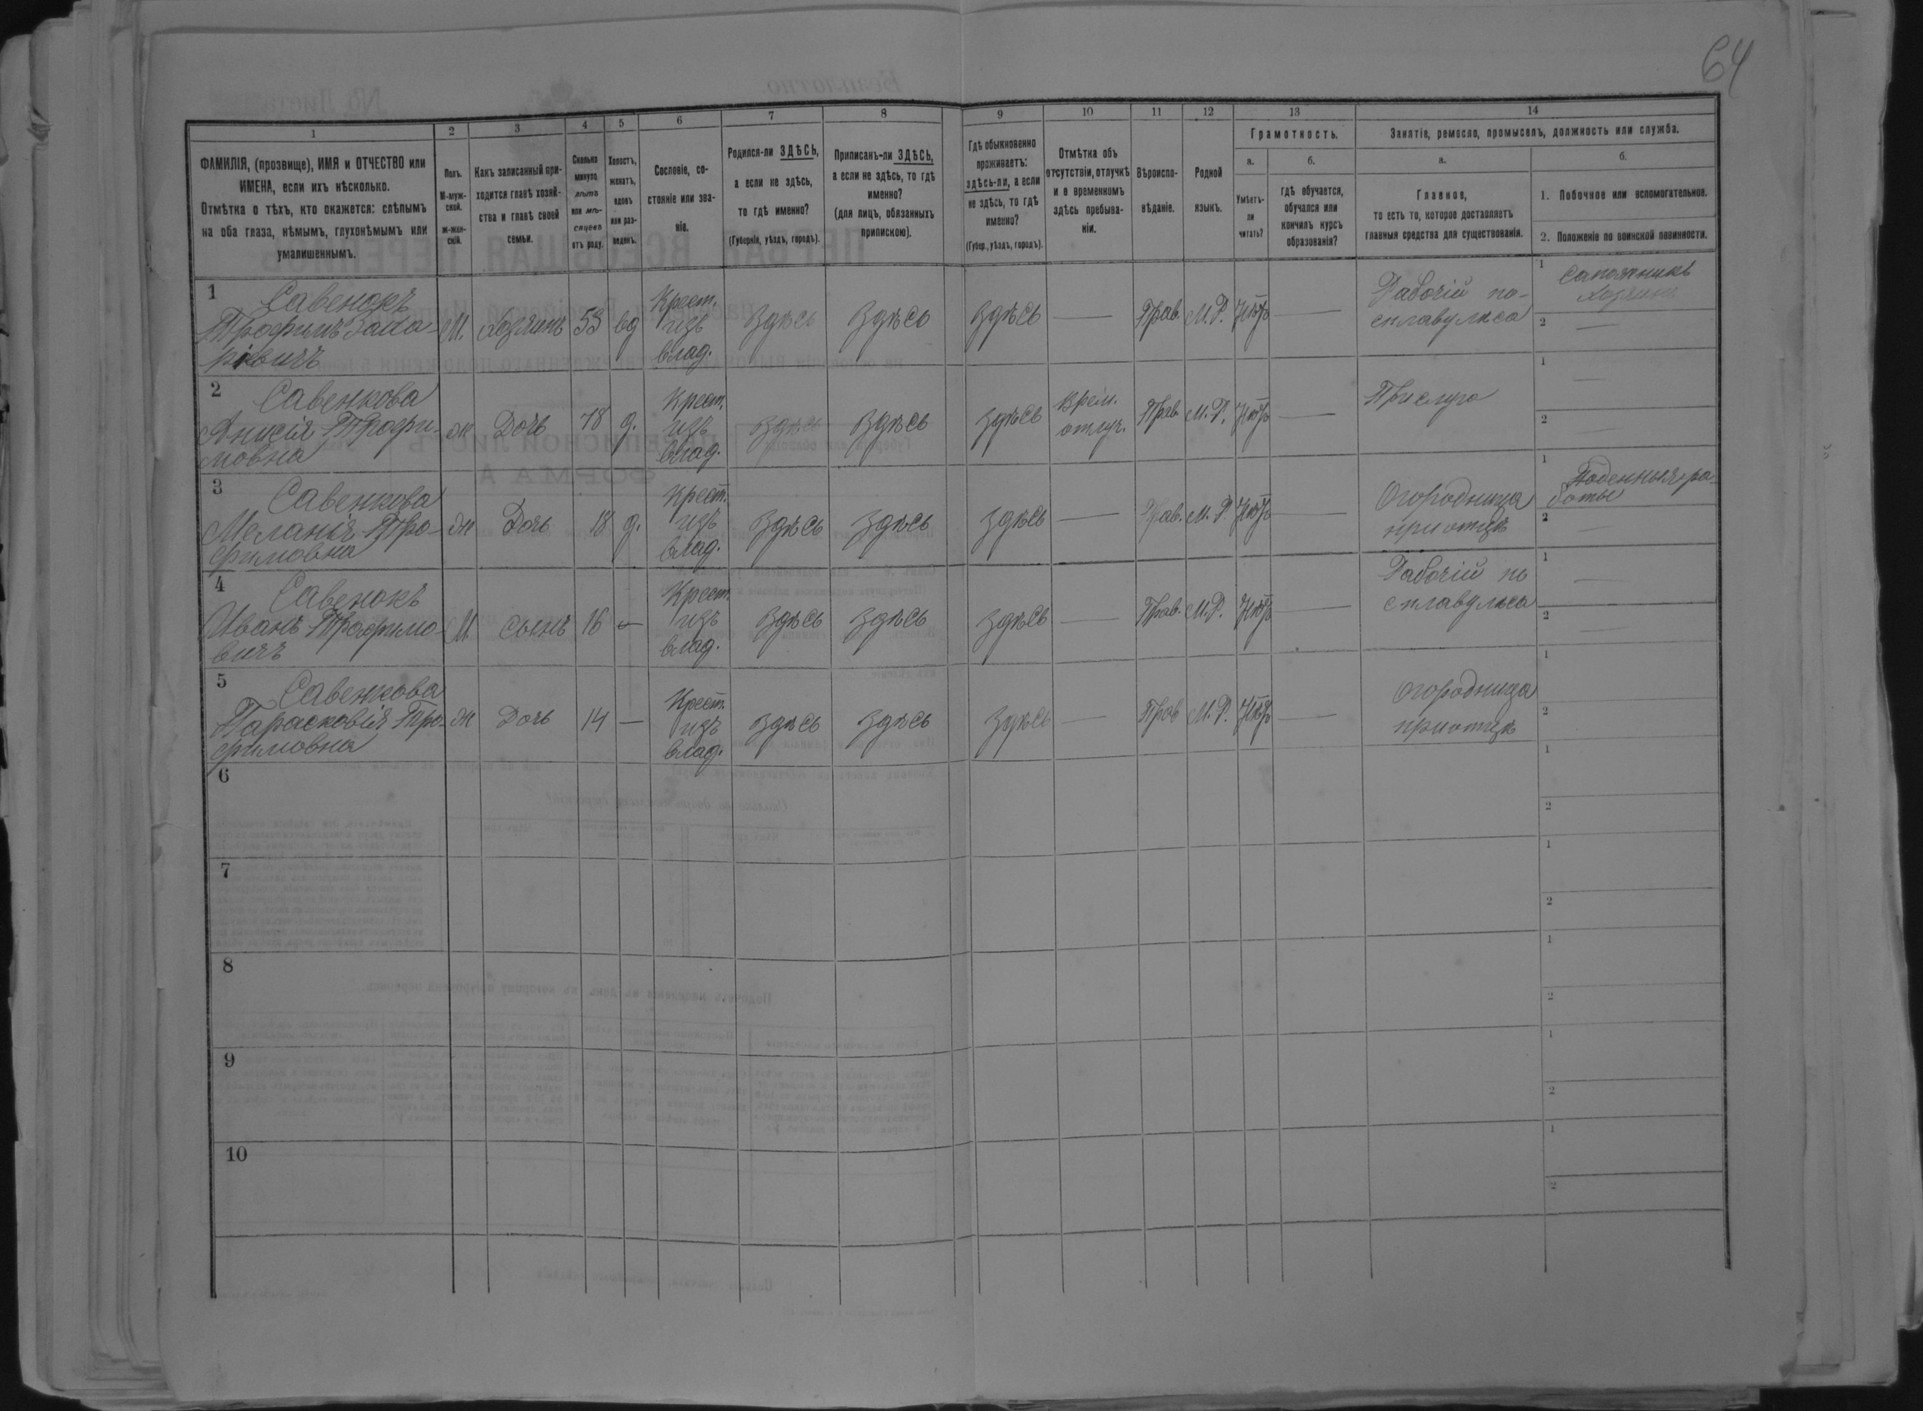 64
1
2
3
4
5
6
7
8
9
10
11
12
13
14
ФАМИЛІЯ, (прозвище), ИМЯ и ОТЧЕСТВО или
ИМЕНА, если ихъ нѣсколько.
Отмѣтка о тѣхъ, кто окажется: слѣпымъ
на оба глаза, нѣмымъ, глухонѣмымъ или
умалишеннымъ.
Полъ.
М-муж-
ской.
Ж-жен-
скій.
Какъ записанный при-
ходится главѣ хозяй-
ства и главѣ своей
семьи.
Сколько
минуло
лѣтъ
или мѣ-
сяцевъ
отъ роду.
Холостъ,
женатъ,
вдовъ
или раз-
веденъ.
Сословіе, со-
стояніе или зва-
ніе.
Родился-ли ЗДѢСЬ,
а если не здѣсь,
то гдѣ именно?
(Губернія, уѣздъ, городъ).
Приписанъ-ли ЗДѢСЬ,
а если не здѣсь, то гдѣ
именно?
(для лицъ, обязанныхъ
припискою).
Гдѣ обыкновенно
проживаетъ:
здѣсь-ли, а если
не здѣсь, то гдѣ
именно?
(Губер., уѣздъ, городъ).
Отмѣтка объ
отсутствіи, отлучкѣ
и о временномъ
здѣсь пребыва-
ніи.
Вѣроиспо-
вѣданіе.
Родной
языкъ.
Грамотность.
а.
Умѣетъ-
ли
читать?
б.
гдѣ обучается,
обучался или
кончилъ курсъ
образованія?
Занятіе, ремесло, промыселъ, должность или служба.
а.
Главное,
то есть то, которое доставляетъ
главныя средства для существованія.
б.
1. Побочное или вспомогательное.
2. Положеніе по воинской повинности.
1
Савенокъ
Трофимъ Заха
ріевичъ
М. хозяинъ 53 вд
Крест.
изъ
влад.
здѣсь здѣсь здѣсь — Прав. М.Р. Нѣтъ —
Рабочій по
сплаву лѣса
1 Сапожникъ
хозяинъ
2 —
2
Савенкова
Анисія Трофи-
мовна
ж Дочь 18 д.
Крест.
изъ
влад.
здѣсь здѣсь здѣсь
врем.
отлуч.
Прав. М.Р. Нѣтъ —
Прислуга
1 —
2
3
Савенкова
Меланія Тро-
фимовна
ж Дочь 18 д.
Крест.
изъ
влад.
здѣсь здѣсь здѣсь — Прав. М.Р. Нѣтъ —
Огородница
при отцѣ
1 Поденныя ра-
боты
2 —
4
Савенокъ
Иванъ Трофимо-
вичъ
М сынъ 16 —
Крест.
изъ
влад.
здѣсь здѣсь здѣсь — Прав. М.Р. Нѣтъ —
Рабочій по
сплаву лѣса
1 —
2 —
5
Савенкова
Парасковія Тро-
фимовна
ж Дочь 14 —
Крест.
изъ
влад.
здѣсь здѣсь здѣсь — Прав М.Р. Нѣтъ —
Огородница
при отцѣ
1
2
6
1
2
7
1
2
8
1
2
9
1
2
10
1
2